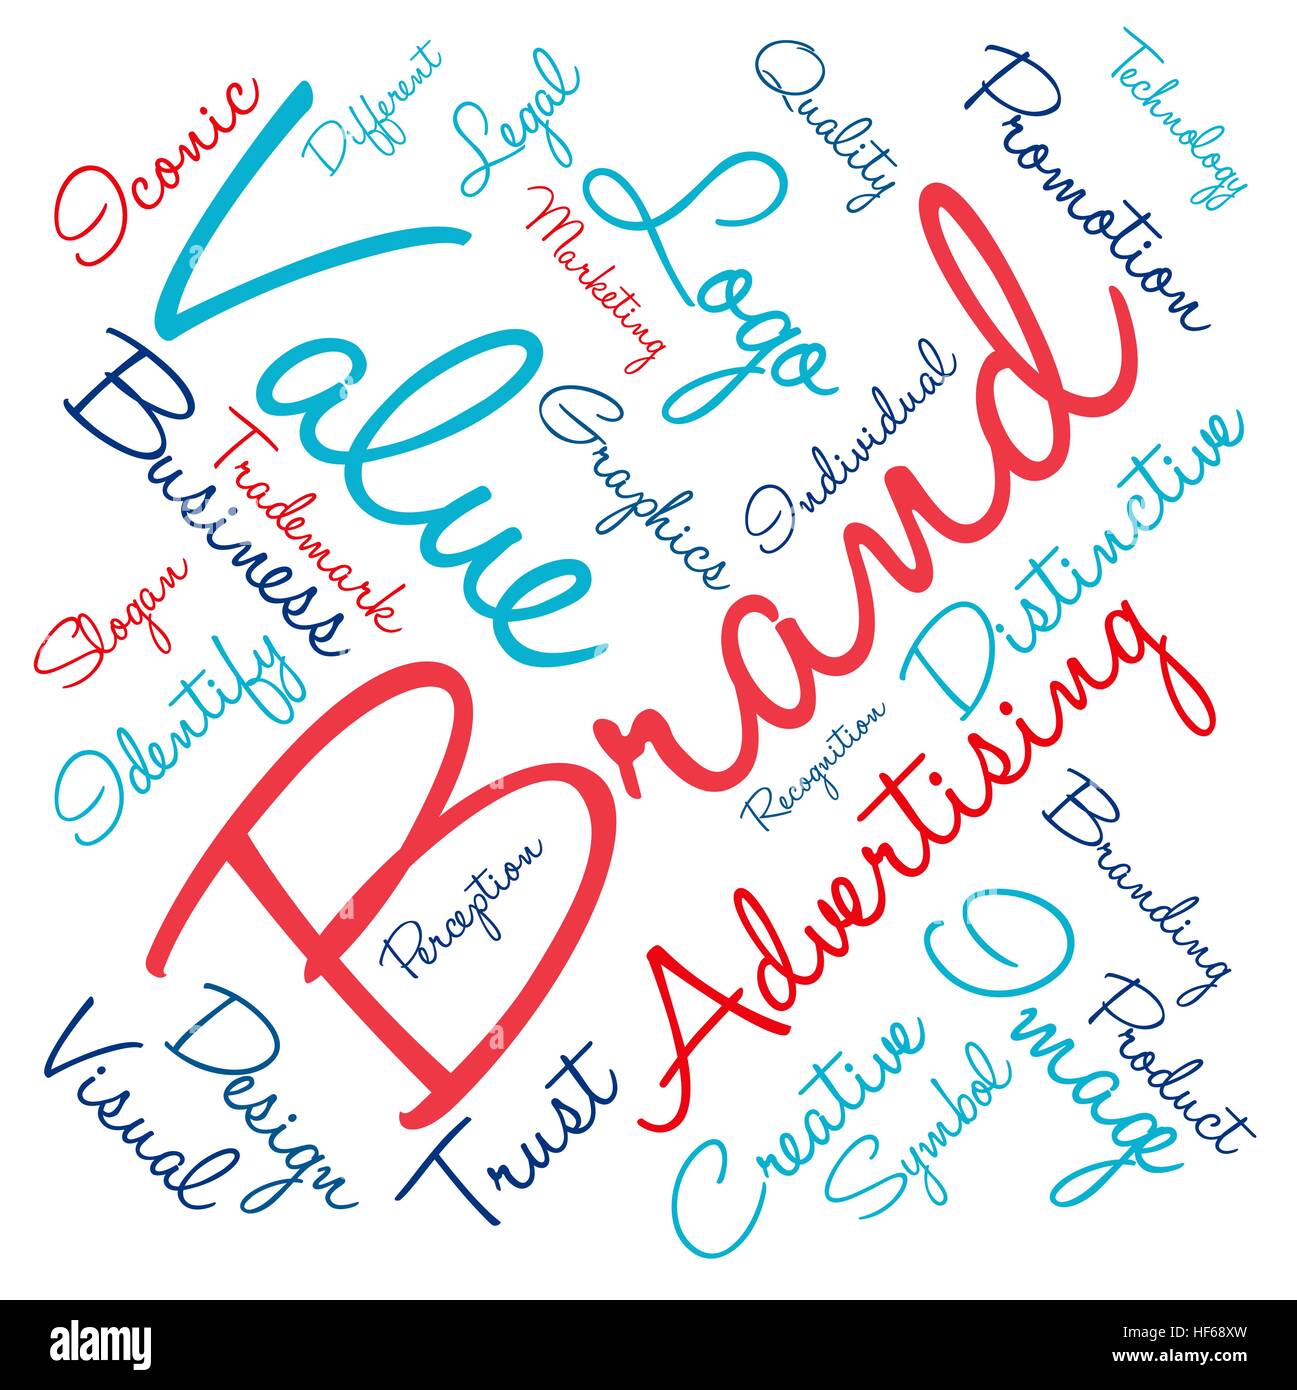 Iconic
Different
Legal
Quality
Promotion
Technology
Value
Marketing
Logo
Business
Trademark
Graphics
Individual
Brand
Distinctive
Slogan
Identify
Recognition
Advertising
Perception
Branding
Visual
Design
Trust
Creative
Symbol
Image
Product
alamy
alamy
Image ID: HF68XW
www.alamy.com